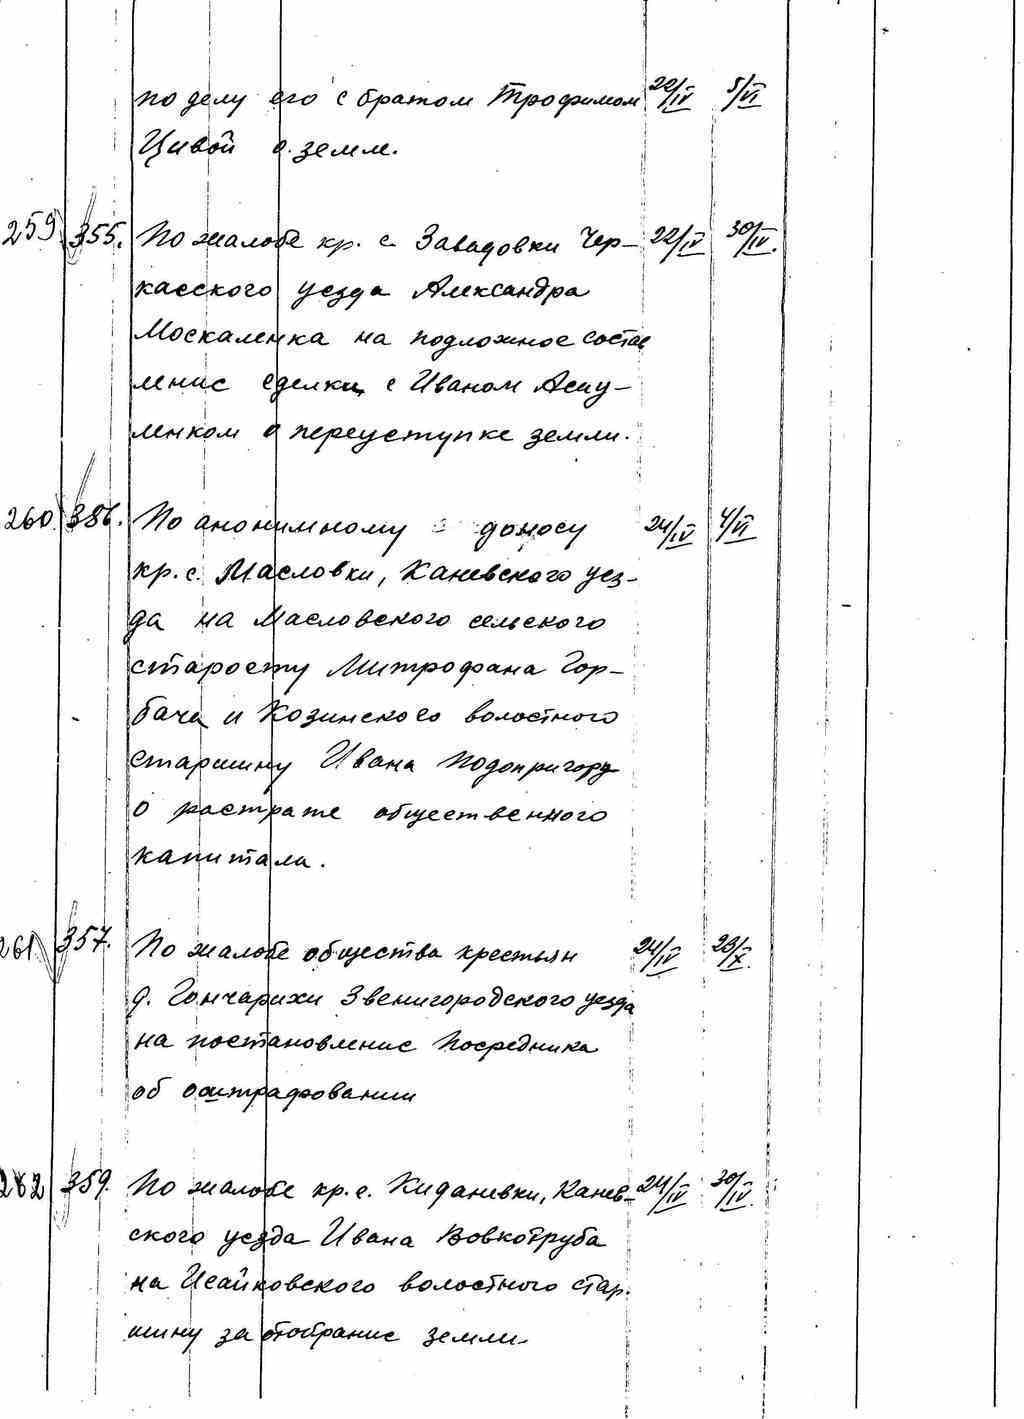 по делу его с братом Трофимом 22/IV 5/VI
Цивой о земле.
259 355. По жалобе кр. с. Завадовки Чер- 22/IV 30/IV.
касского уезда Александра
Москаленка на подложное состав
ление сделки с Иваном Асау-
ленком о переуступке земли.
260 356. По анонимному доносу 24/IV 4/VI
кр. с. Масловки, Каневского уез-
да на Масловского сельского
старосту Митрофана Гор-
бача и Козинского волостного
старшину Ивана Подопригору
о растрате общественного
капитала.
261 357. По жалобе общества крестьян 24/IV 29/X.
д. Гончарихи Звенигородского уезда
на постановление Посредника
об оштрафовании
262 359. По жалобе кр. с. Киданивки, Канев- 24/IV 30/IV.
ского уезда Ивана Вовкотруба
на Исайковского волостного стар-
шину за отобрание земли.